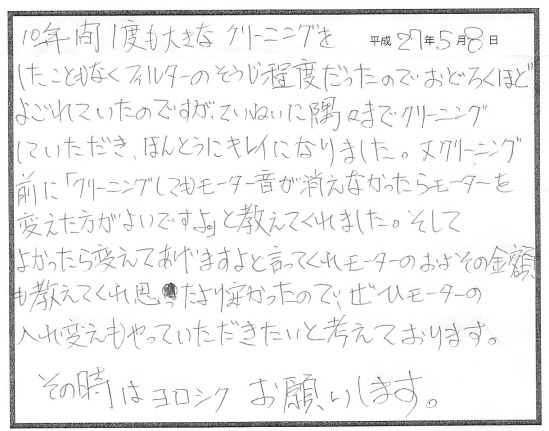 平成27年5月8日
10年間1度も大きなクリーニングを
したこともなくフィルターのそうじ程度だったのでおどろくほど
よごれていたのですが、ていねいに隅々までクリーニング
していただき、ほんとうにキレイになりました。又クリーニング
前に「クリーニングしてもモーター音が消えなかったらモーターを
変えた方がよいですよ」と教えてくれました。そして
よかったら変えてあげますよと言ってくれモーターのおよその金額
も教えてくれ思ったより安かったので、ぜひモーターの
入れ変えもやっていただきたいと考えております。
その時はヨロシクお願いします。